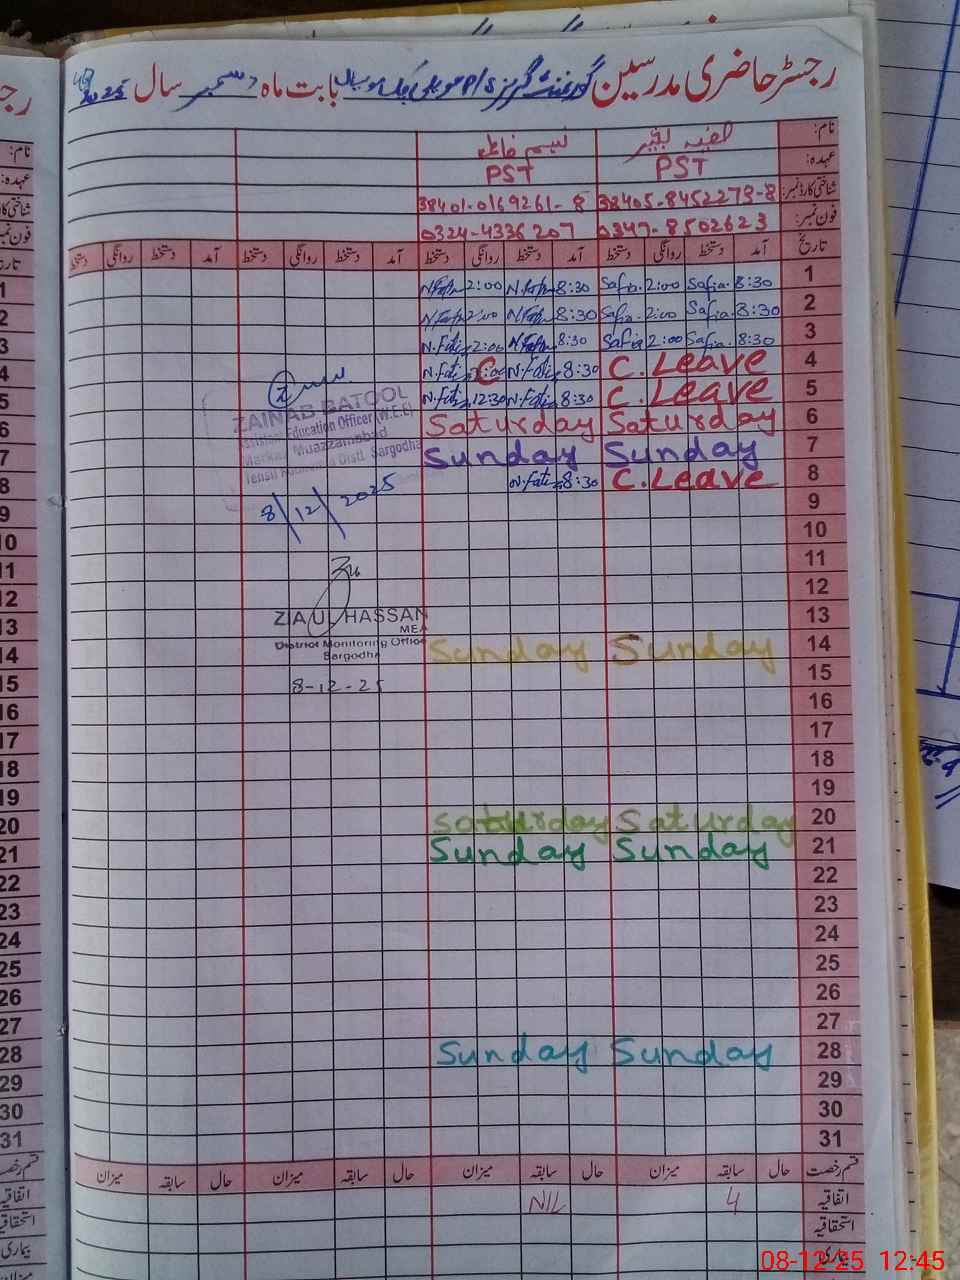 رجسٹر حاضری مدرسین گورنمنٹ گرلز P/S بابت ماہ دسمبر سال 2025
نام:
عہدہ: PST PST
شناختی کارڈ نمبر: 38405-8452273-8 38401-0169261-8
فون نمبر: 0347-8502623 0324-4336207
تاریخ آمد دستخط روانگی دستخط آمد دستخط روانگی دستخط آمد دستخط روانگی دستخط آمد دستخط روانگی دستخط
1 8:30 Safia. 2:00 Safia 8:30 2:00
2 8:30 Safia. 2:00 Safia 8:30 2:00
3 8:30 Safia. 2:00 Safia 8:30 2:00 N.Fati
4 C.Leave 8:30 N.Fati C N.Fati
5 C.Leave 8:30 N.Fati 12:30 N.Fati
6 Saturday Saturday
7 Sunday Sunday
8 C.Leave 8:30 N.Fati
ZAINAB BATOOL
Assistant Education Officer (W.E.E)
Markaz Muazzamabad
Tehsil Distt. Sargodha
8/12/2025
9
10
11
12
13
ZIA UL HASSAN
MEA
District Monitoring Office
Sargodha
8-12-25
14 Sunday Sunday
15
16
17
18
19
20 Saturday Saturday
21 Sunday Sunday
22
23
24
25
26
27
28 Sunday Sunday
29
30
31
قسم رخصت حال سابقہ میزان حال سابقہ میزان حال سابقہ میزان حال سابقہ میزان
اتفاقیہ 4 NIL
استحقاقیہ
بیماری
08-12-25 12:45